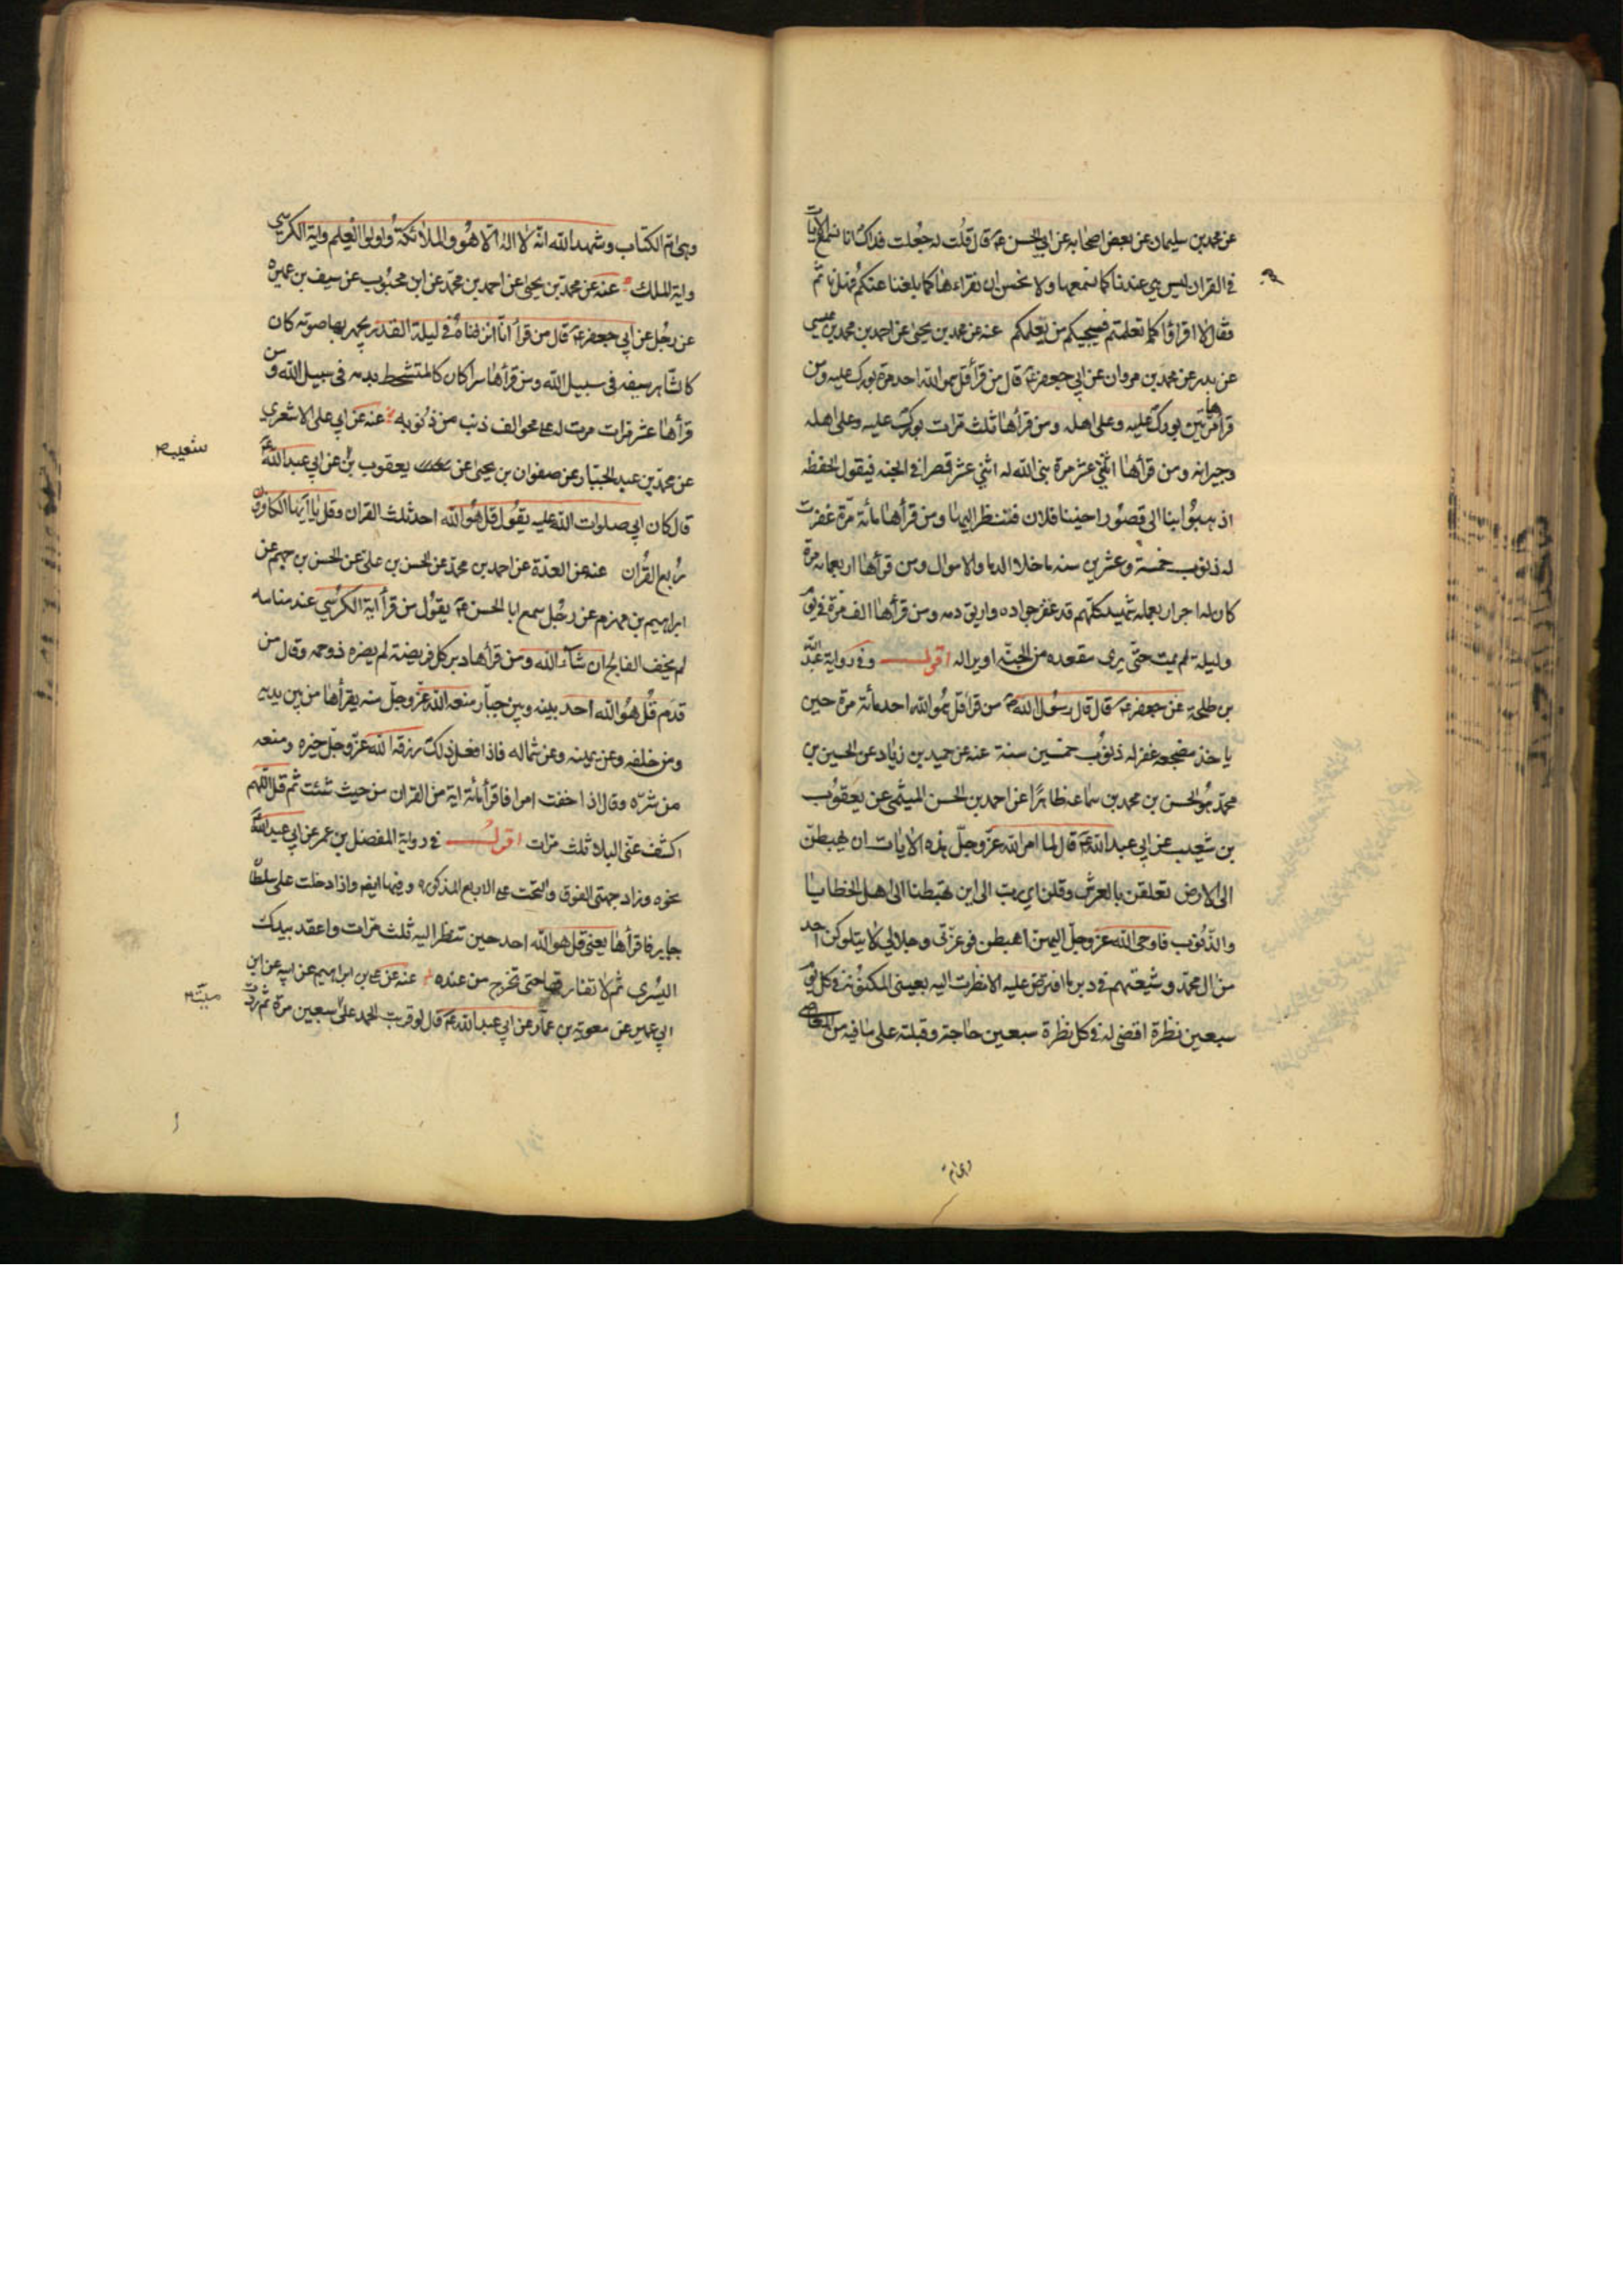 عن محمد بن سليمان عن بعض اصحابه عن ابي الحسن ع قال قلت له جعلت فداك انا نسمع الايات
في القران ليس هي عندنا كما نسمعها ولا نحسن ان نقراءها كما بلغنا عنكم فهل ناثم
فقال لا اقراؤا كما تعلمتم فسيجيكم من يعلمكم عنه عن محمد بن يحيى عن احمد بن محمد بن عيسى
عن بدر عن محمد بن مروان عن ابي جعفر ع قال من قرأ قل هو الله احد مرة بورك عليه ومن
قراها مرتين بورك عليه وعلى اهله ومن قرأها ثلث مرات بورك عليه وعلى اهله
وجيرانه ومن قرأها اثنى عشر مرة بنى الله له اثنى عشر قصرا في الجنه فيقول الحفظه
اذهبوا بنا الى قصور اخينا فلان فننظر اليها ومن قرأها مائة مرة غفرت
له ذنوب خمسة وعشرين سنه ما خلا الدما والاموال ومن قرأها اربعمائه مرة
كان له اجر اربعمائه شهيد كلهم قد عقر جواده واريق دمه ومن قرأها الف مرة في يوم
وليلة لم يمت حتى يرى مقعده من الجنة او يرا له اقول وفي رواية عبد الله
بن طلحة عن جعفر ع قال قال رسول الله ص من قرا قل هو الله احد مائة مرة حين
ياخذ مضجعه غفر له ذنوب خمسين سنة عنه عن حميد بن زياد عن الحسين بن
محمد هو الحسن بن محمد بن سماعه ظاهرا عن احمد بن الحسن الميثمي عن يعقوب
بن شعيب عن ابي عبد الله ع قال لما امر الله عز وجل بهذه الايات ان يهبطن
الى الارض تعلقن بالعرش وقلن اي رب الى اين تهبطنا الى اهل الخطايا
والذنوب فاوحى الله عز وجل اليهن اهبطن فوعزتي وجلالي لا يتلوكن احد
من ال محمد وشيعتهم في دبر ما افترض عليه الا نظرت اليه بعيني المكنونة في كل يوم
سبعين نظرة اقضى له في كل نظرة سبعين حاجة وقبلته على ما فيه من المعاصي
وهي ام
وهي ام الكتاب وشهد الله انه لا اله الا هو والملائكة واولوا العلم واية الكرسي
واية الملك عنه عن محمد بن يحيى عن احمد بن محمد عن ابن محبوب عن سيف بن عميره
عن رجل عن ابي جعفر ع قال من قرأ انا انزلناه في ليلة القدر يجهر بها صوته كان
كالشاهر سيفه في سبيل الله ومن قرأها سرا كان كالمتشحط بدمه في سبيل الله ومن
قرأها عشر مرات مرت له على محو الف ذنب من ذنوبه عنه عن ابي على الاشعري
عن محمد بن عبد الجبار عن صفوان بن يحيى عن يعقوب بن عن ابي عبد الله ع
شعيب صح
قال كان ابي صلوات الله عليه يقول قل هو الله احد ثلث القران وقل يا ايها الكافرون
ربع القران عنه عن العدة عن احمد بن محمد عن الحسن بن على عن الحسن بن جهم عن
ابراهيم بن مهزم عن رجل سمع ابا الحسن ع يقول من قرأ اية الكرسي عند منامه
لم يخف الفالج ان شاء الله ومن قرأها دبر كل فريضة لم يضره ذو حمه وقال من
قدم قل هو الله احد بينه وبين جبار منعه الله عز وجل منه يقرأها من بين يديه
ومن خلفه وعن يمينه وعن شماله فاذا فعل ذلك رزقه الله عز وجل خيره ومنعه
من شره وقال اذا خفت امرا فاقرأ مائة اية من القران من حيث شئت ثم قل اللهم
اكشف عني البلا ثلث مرات اقول في رواية المفضل بن عمر عن ابي عبد الله ع
نحوه وزاد جهتي الفوق والتحت على الاربع المذكوره وفيها ايضا واذا دخلت على سلطان
جاير فاقرأها يعني قل هو الله احد حين تنظر اليه ثلث مرات واعقد بيدك
اليسرى ثم لا تفارقها حتى تخرج من عنده عنه عن على بن ابراهيم عن ابيه عن ابن
ابي عمير عن معوية بن عمار عن ابي عبد الله ع قال لو قريت الحمد على سبعين مرة ثم ردت
ميت